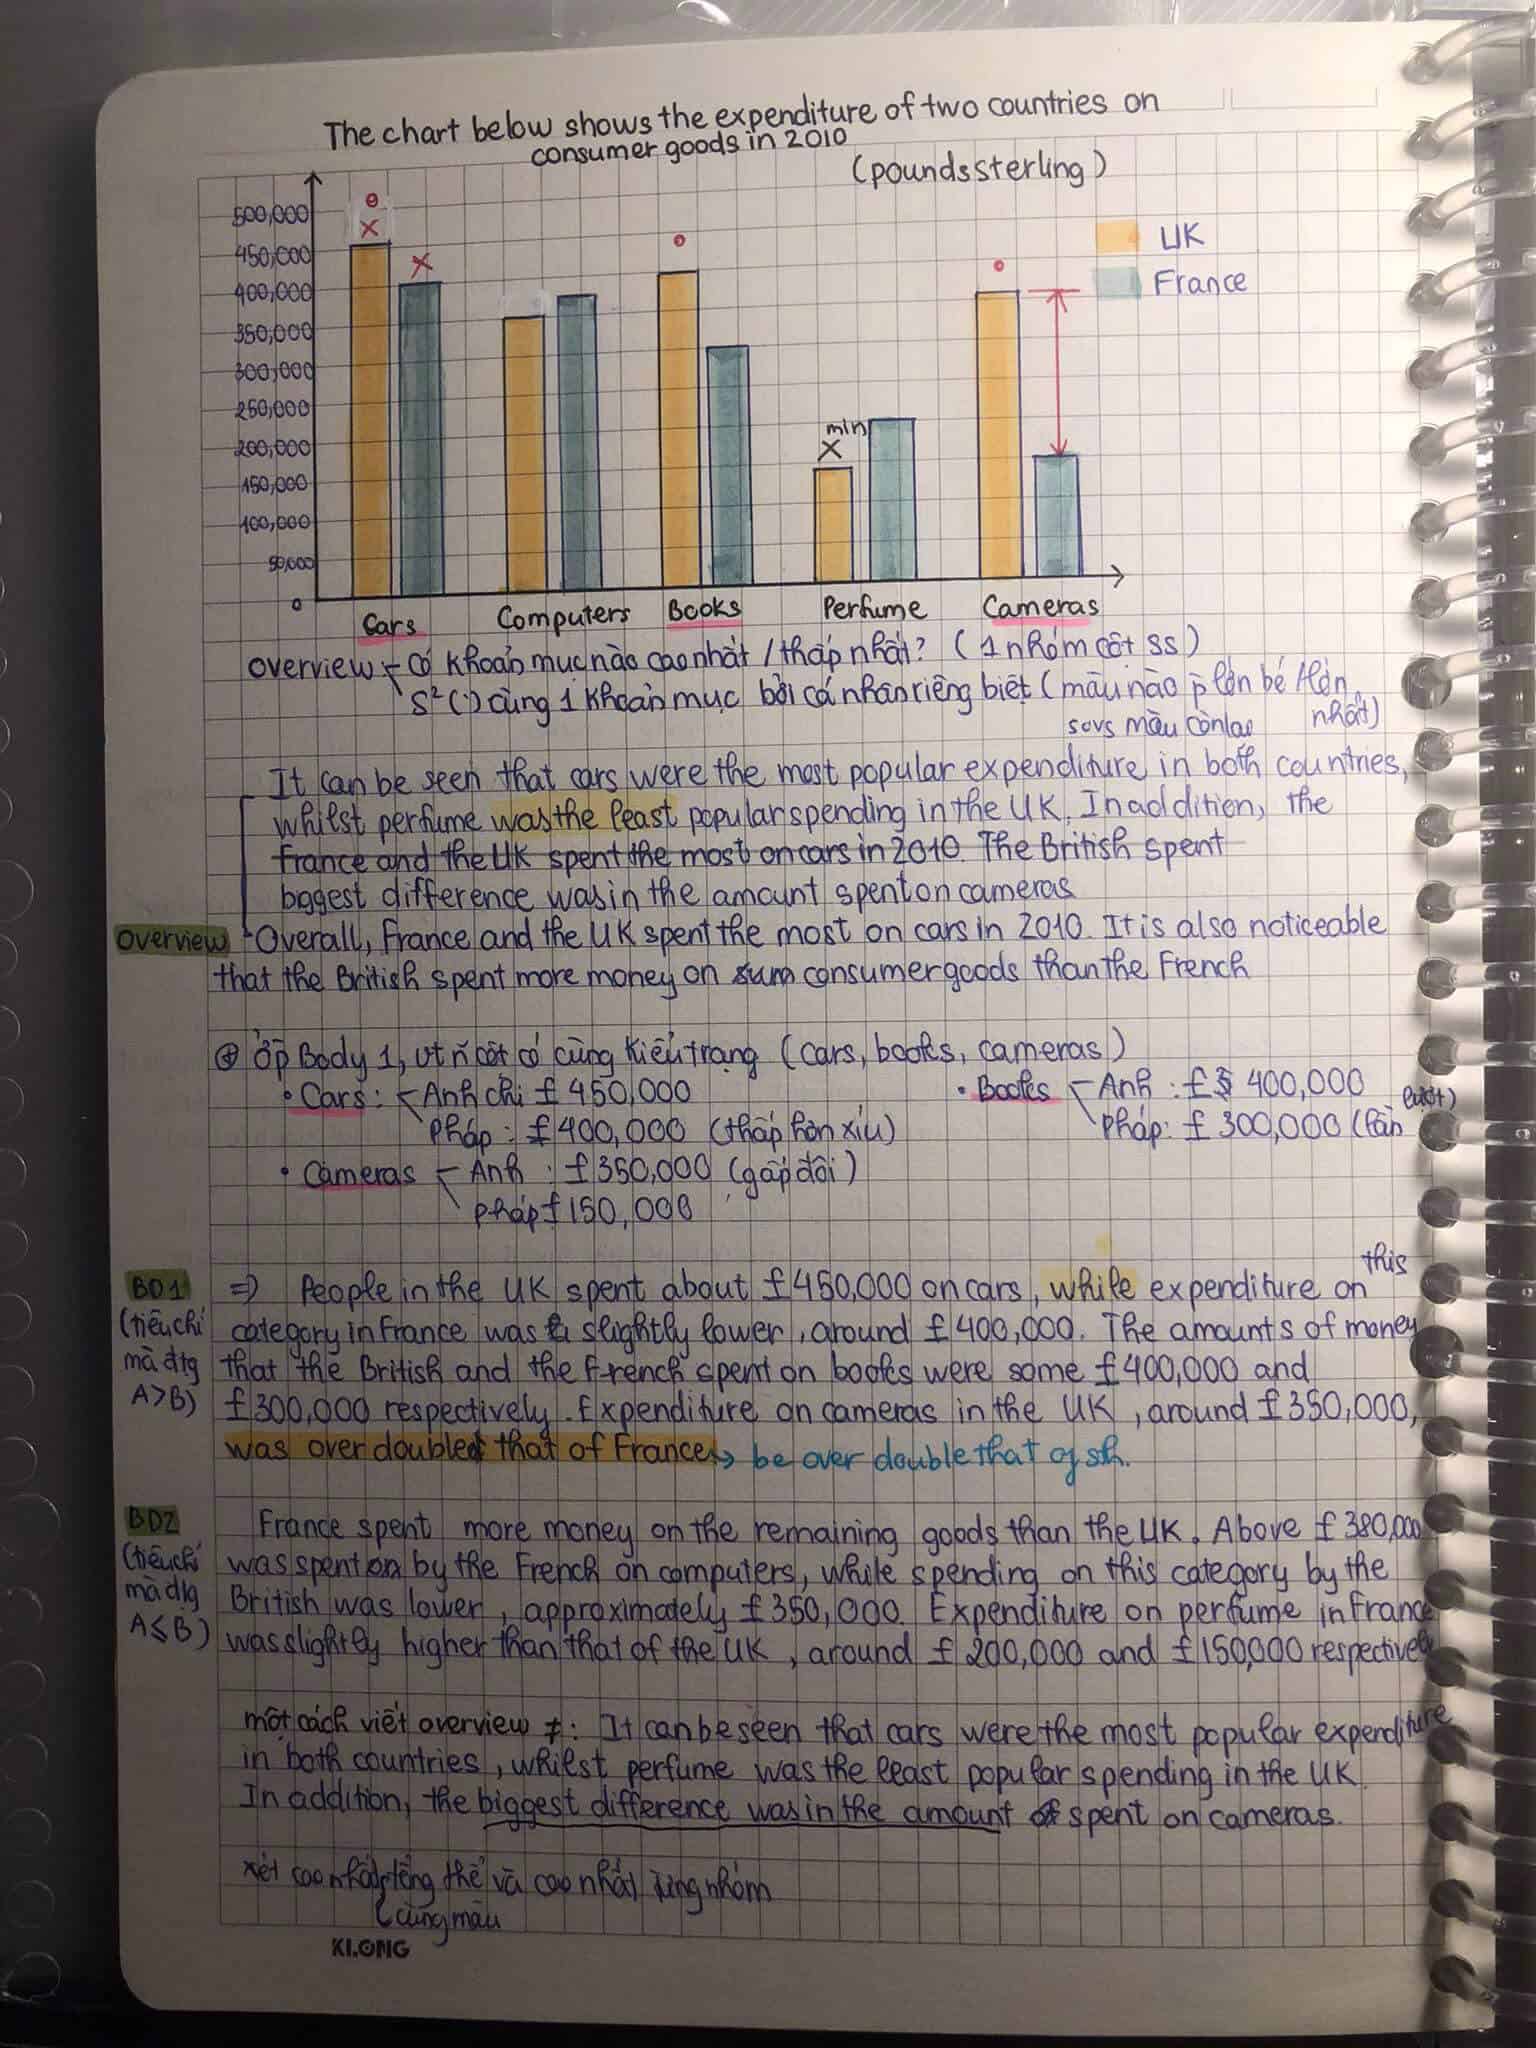 The chart below shows the expenditure of two countries on
consumer goods in 2010
(pounds sterling)
500,000
450,000
400,000
350,000
300,000
250,000
200,000
150,000
100,000
50,000
0
UK
France
min
Cars
Computers
Books
Perfume
Cameras
Overview - Có khoản mục nào cao nhất / thấp nhất? (1 nhóm cột SS)
S² (:) cùng 1 khoản mục bởi cá nhân riêng biệt (màu nào lớn bé /lớn
so vs màu còn lại nhất)
It can be seen that cars were the most popular expenditure in both countries,
whilst perfume was the least popular spending in the UK. In addition, the
France and the UK spent the most on cars in 2010. The British spent
biggest difference was in the amount spent on cameras
Overview Overall, France and the UK spent the most on cars in 2010. It is also noticeable
that the British spent more money on consumer goods than the French
Ở Body 1, cột có cùng kiểu trạng (cars, books, cameras)
• Cars: Anh chi £450,000
Pháp: £400,000 (thấp hơn xíu)
• Books Anh: £ 400,000
Pháp: £ 300,000 (lần lượt)
• Cameras Anh: £350,000 (gấp đôi)
Pháp £150,000
BD1 ⇒ People in the UK spent about £450,000 on cars, while expenditure on this
(tiêu chí category in France was slightly lower, around £400,000. The amounts of money
mà đtg that the British and the French spent on books were some £400,000 and
A>B) £300,000 respectively. Expenditure on cameras in the UK, around £350,000,
was over doubled that of France → be over double that of sth.
BD2 France spent more money on the remaining goods than the UK. Above £380,000
(tiêu chí was spent on by the French on computers, while spending on this category by the
mà đtg British was lower, approximately £350,000. Expenditure on perfume in France
A≤B) was slightly higher than that of the UK, around £200,000 and £150,000 respectively
một cách viết overview ≠: It can be seen that cars were the most popular expenditure
in both countries, whilst perfume was the least popular spending in the UK.
In addition, the biggest difference was in the amount of spent on cameras.
xét cao nhất tổng thể và cao nhất từng nhóm
(cùng màu
KLONG